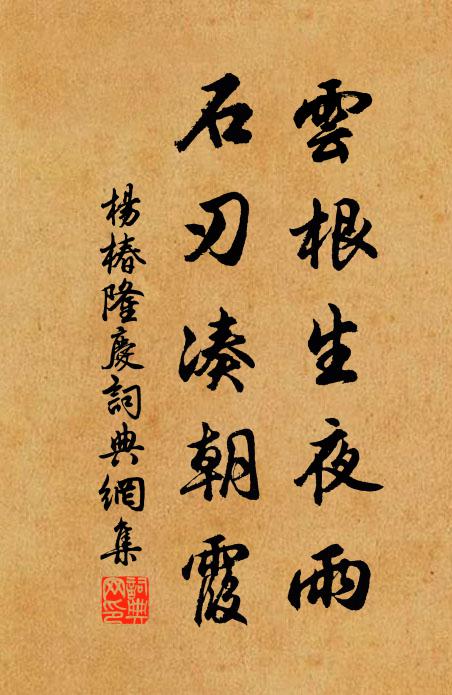 雲根生夜雨
石刃湊朝霞
楊椿隆慶詞典網集
詞典
网印